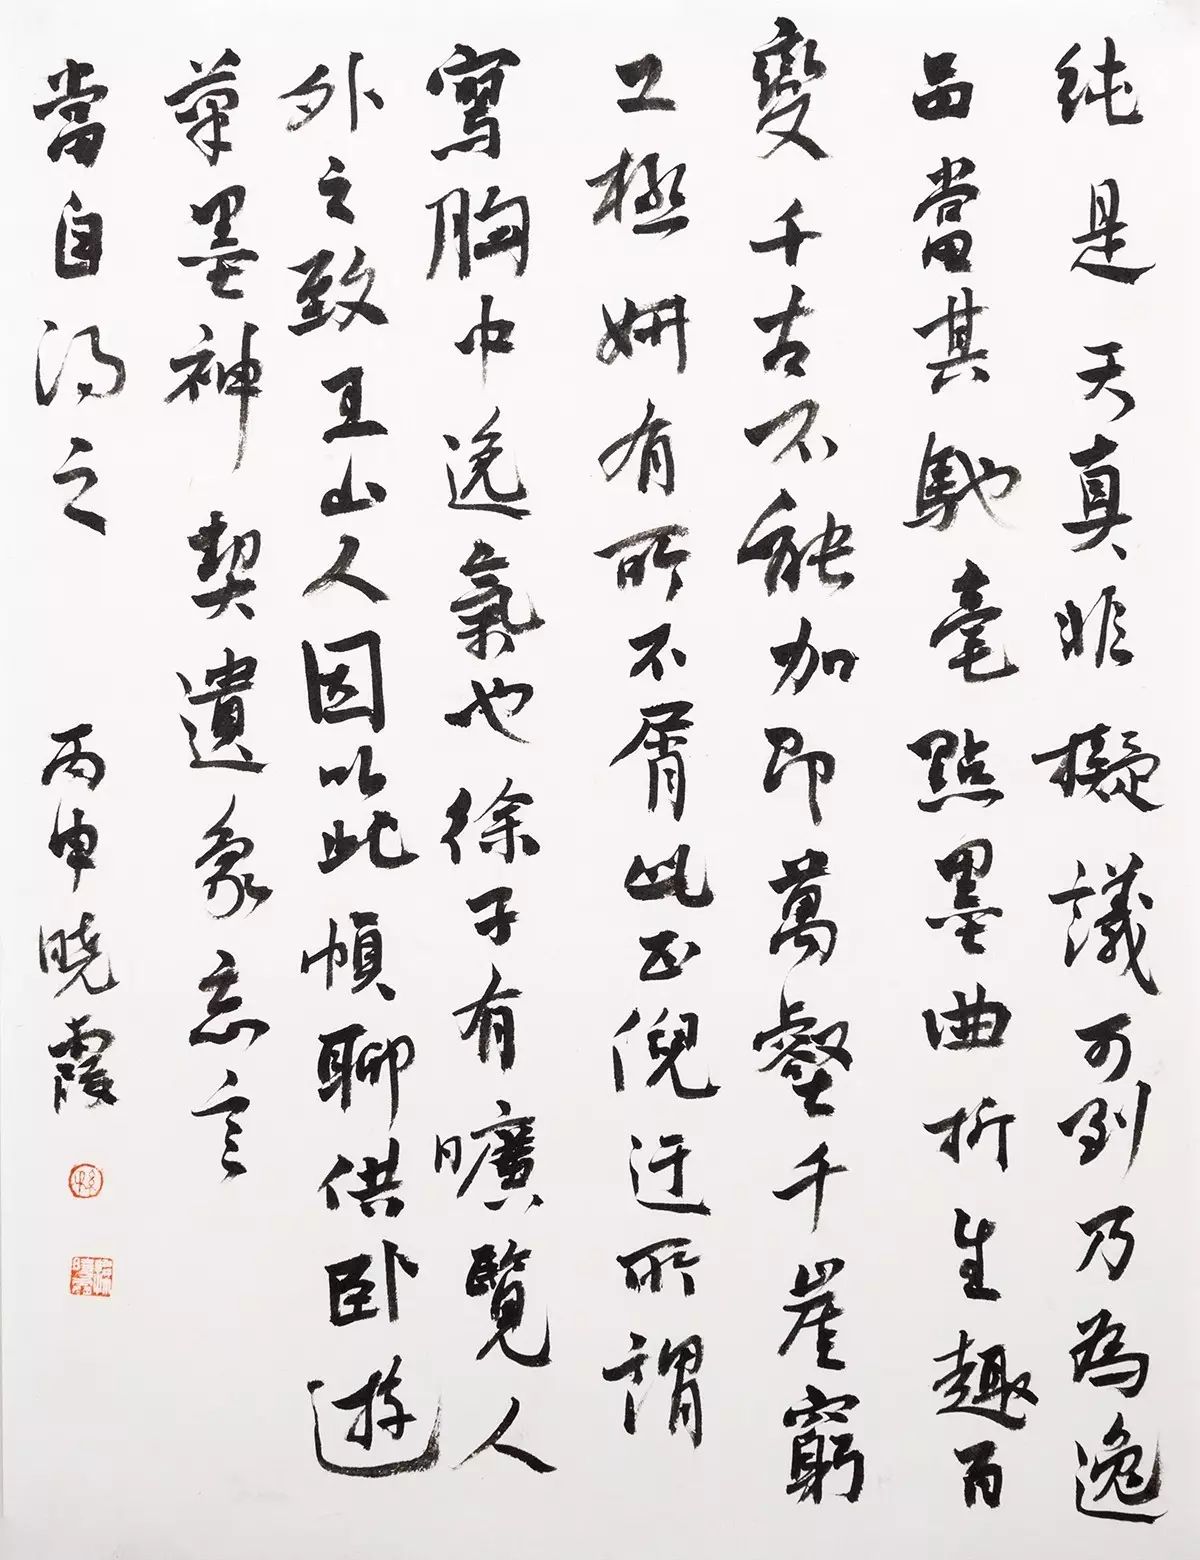 純是天真非擬議可到乃為逸
品當其馳毫點墨曲折生趣百
變千古不能加即萬壑千崖窮
工極妍有所不屑此正倪迂所謂
寫胸中逸氣也徐子有曠覽人
外之致王山人因以此幀聊供臥遊
筆墨神契遺象忘言
當自得之 丙申曉霞